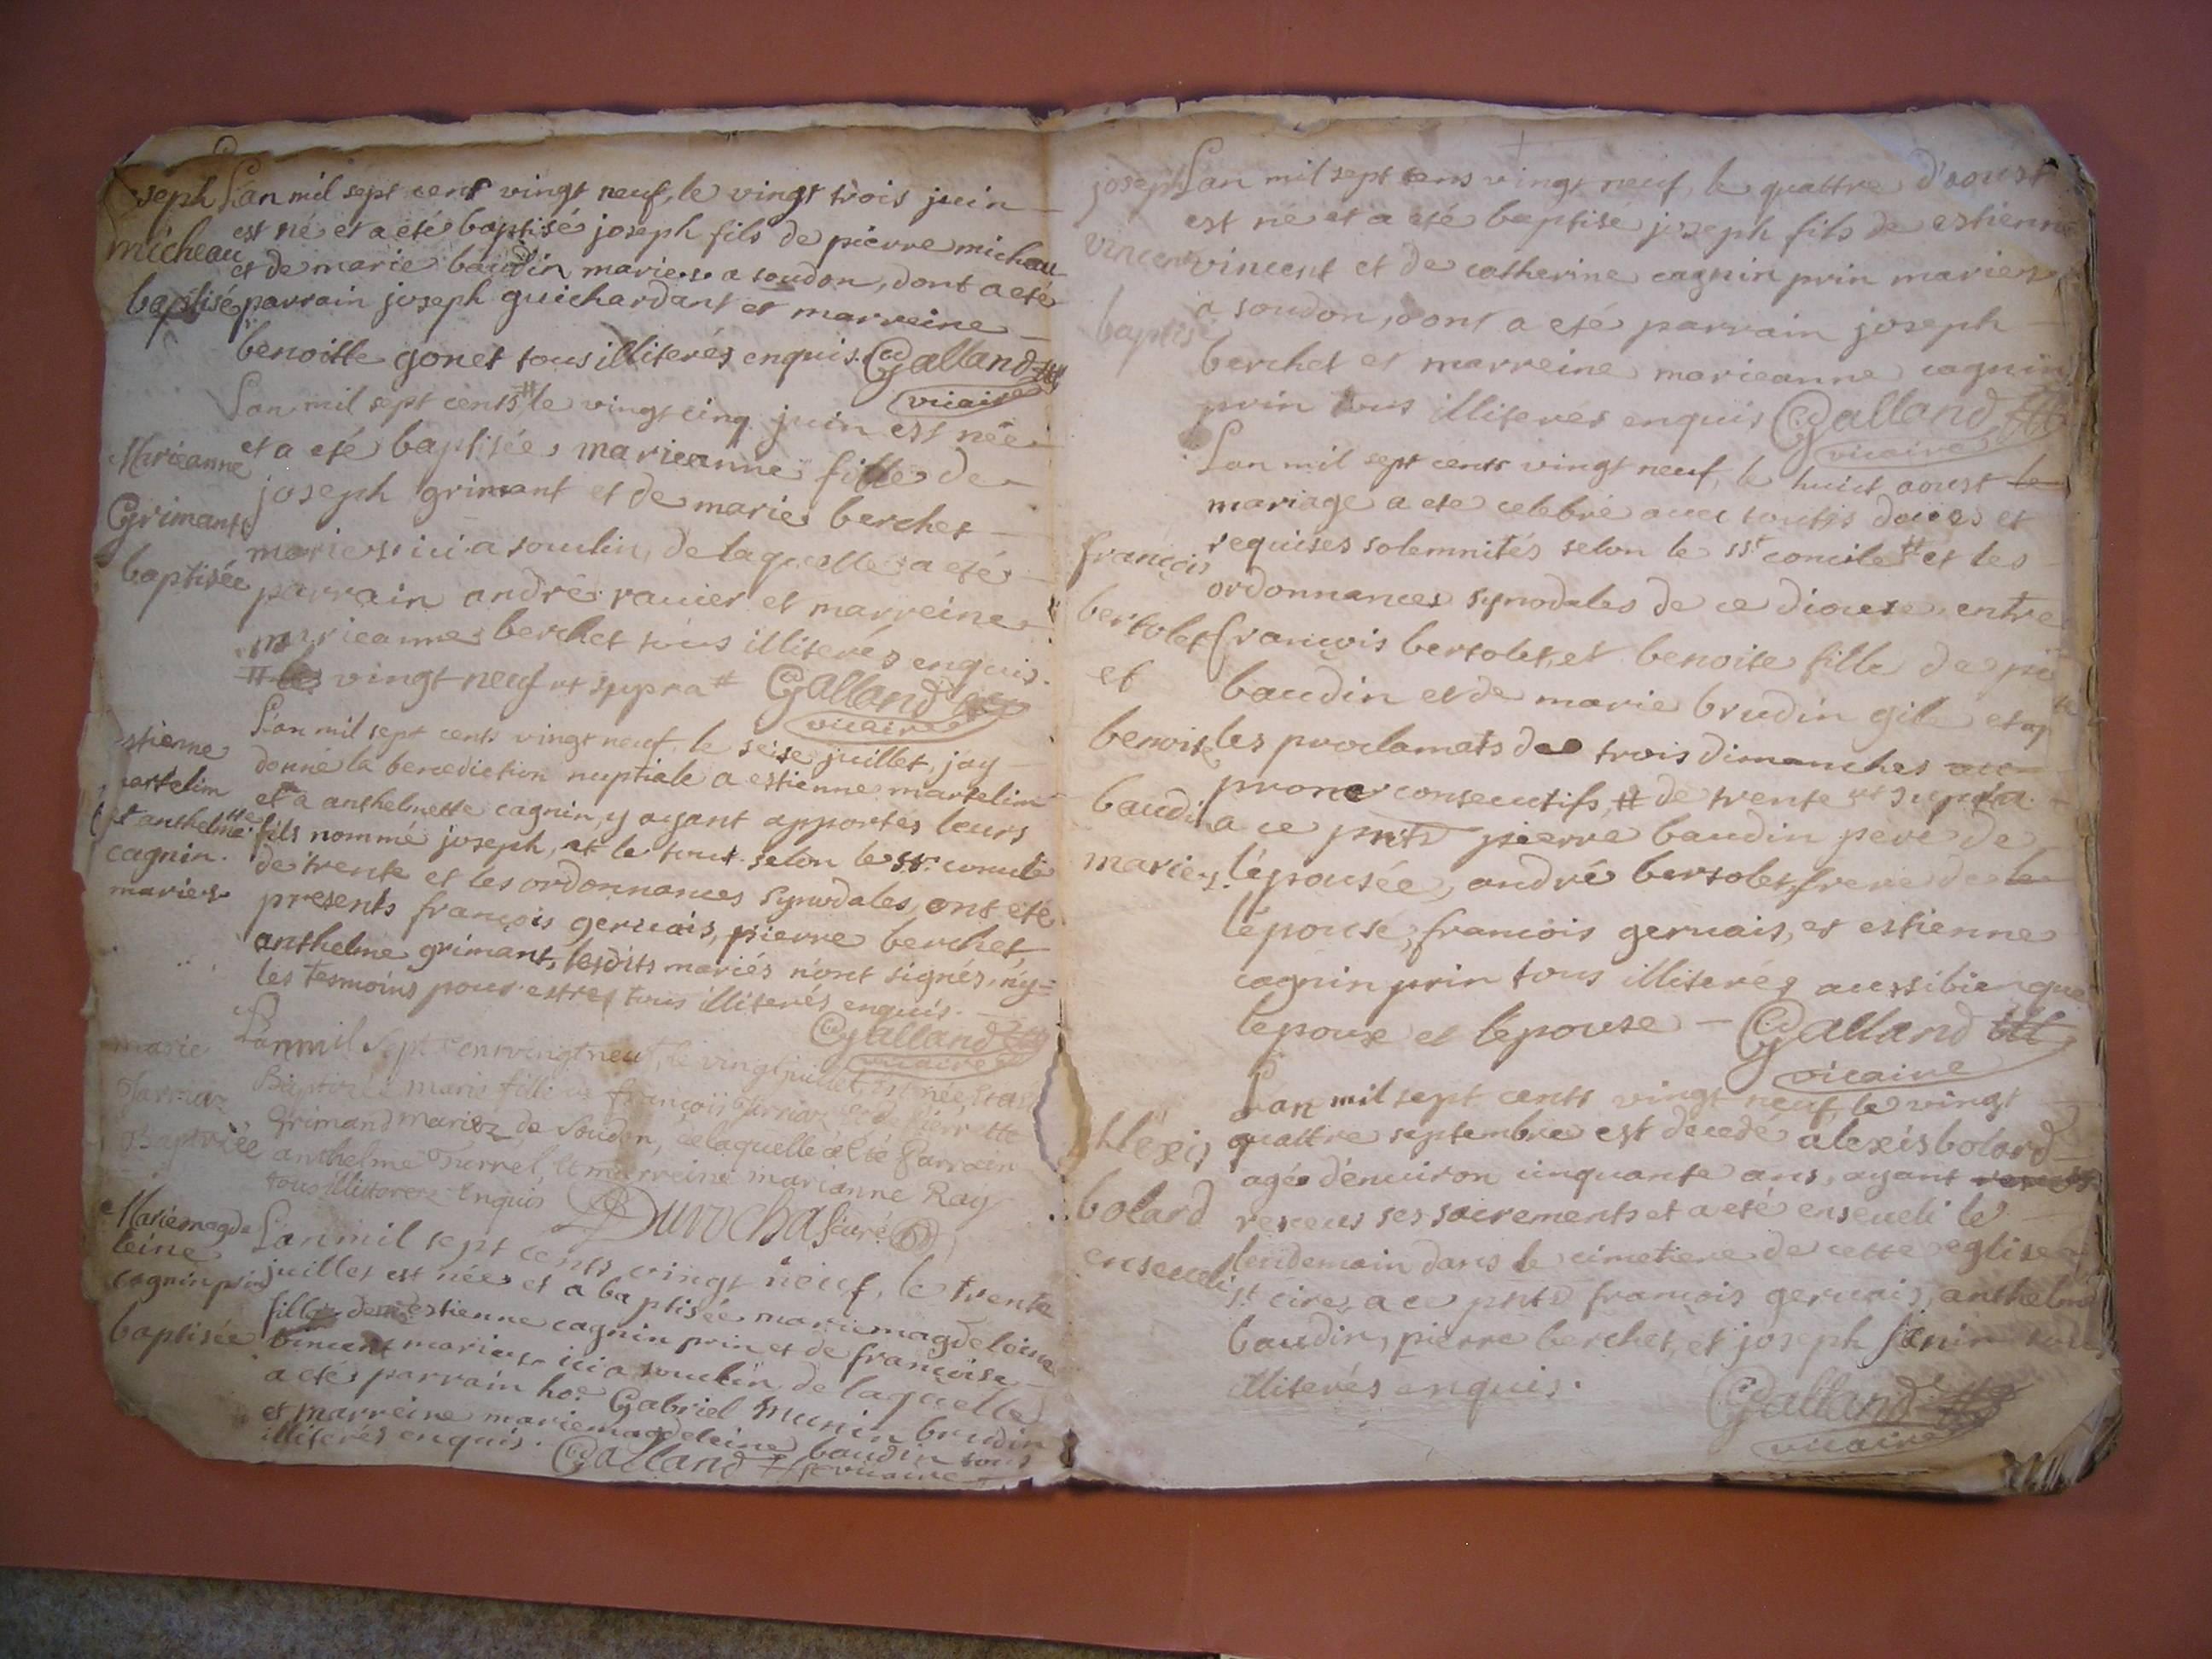 seph
micheau
baptisé
Lan mil sept cent vingt neuf, le vingt trois juin
est né et a eté baptisé joseph fils de pierre micheau
et de marie baudin maries a soudon, dont a eté
parrain joseph guichardant et marreine
benoitte gonet tous illiterés enquis. Galland
vicaire
Marieanne
Grimant
baptisée
Lan mil sept cents # le vingt cinq juin est née
et a eté baptisée marieanne fille de
joseph grimant et de marie berchet
maries ici a soudin, de laquelle a eté
parrain andré rauier et marreine
marieanne berchet tous illiterés enquis.
# vingt neuf ut supra # Galland
vicaire
stienne
martelim
et anthelmette
cagnin.
maries
Lan mil sept cents vingt neuf, le seise juillet, jay
donné la benediction nuptiale a estienne martelim
et a anthelmette cagnin, y ayant apportes leurs
fils nommé joseph, et le tout selon le sst. concile
de trente et les ordonnances synodales, ont eté
presents françois geruais, pierre berchet,
anthelme grimant, lesdits mariés n'ont signés, ny=
les tesmoins pour estres tous illiterés enquis.
Galland
vicaire
marie
Jarriaz
Baptizée
Lanmil sept cent vingt neuf, le vingt juillet, est née et a
Baptizée marie fille de françois Jarriaz et de Pierrette
Grimand mariez de Soudon, de laquelle a eté Parrain
anthelme Turrel, et marreine marianne Ray
tous illitterez Enquis Durochat curé
Mariemagde
leine
cagnin prin
baptisée
Lan mil sept cents vingt neuf, le trente
juillet est née et a baptisée mariemagdeleine
fille de estienne cagnin prin et de françoise
vincent maries ici a soudin, de laquelle
a eté parrain hoe Gabriel munin brudin
et marreine mariemagdeleine baudin tous
illiterés enquis. Galland vicaire
joseph
vincent
baptisé
Lan mil sept cens vingt neuf, le quattre d'aoust
est né et a eté baptisé joseph fils de estienne
vincent et de catherine cagnin prin maries
a soudon, dont a eté parrain joseph
berchet et marreine marieanne cagnin
prin tous illiterés enquis Galland
vicaire
françois
bertolet
et
benoite
baudin
maries.
Lan mil sept cents vingt neuf, le huict aoust le
mariage a eté celebré auec toutes doues et
requises solemnités selon le sst concile # et les
ordonnances synodales de ce diocese entre
françois bertolet, et benoite fille de
baudin et de marie brudin gile et ap
les proclamats de trois dimanches
prone consecutifs, # de trente ut supra
a ce pnts pierre baudin pere de
lépousée, andré bertolet frere de le
lépouse, francois geruais, et estienne
cagnin prin tous illiterés aussi bien que
lepoux et lepouse — Galland
vicaire
Alexis
bolard
enseueli
Lan mil sept cents vingt neuf, le vingt
quattre septembre est decedé alexis bolard
agé d'enuiron cinquante ans, ayant
receus ses sacrements et a eté enseueli le
lendemain dans le cimetiere de cette eglise
st cire, a ce pnts francois geruais, anthelme
baudin, pierre berchet, et joseph janin
illiterés enquis.
Galland
vicaire